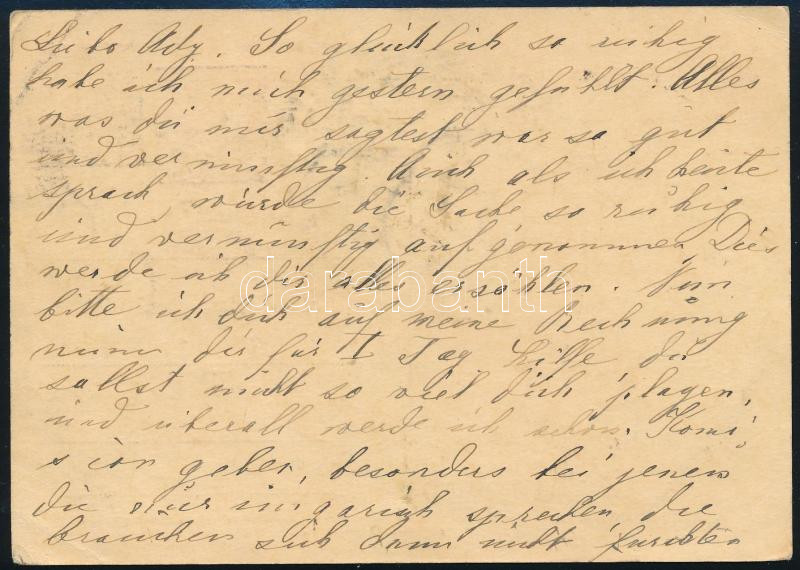 Liebe Ady. So glücklich so ruhig
habe ich mich gestern gefühlt. Alles
was du mir sagtest war so gut
und vernünftig. Auch als ich heute
sprach, wurde die Sache so ruhig
und vernünftig aufgenommen. Dies
werde ich dir alles erzählen. Nun
bitte ich dich auf meine Rechnung
nimm dir für 1 Tag Hilfe du
sollst nicht so viel dich plagen,
und überall werde ich schon Komi
sion geben, besonders bei jenen
die nur ungarisch sprechen die
brauchen sich dann nicht fürchten
darabanth